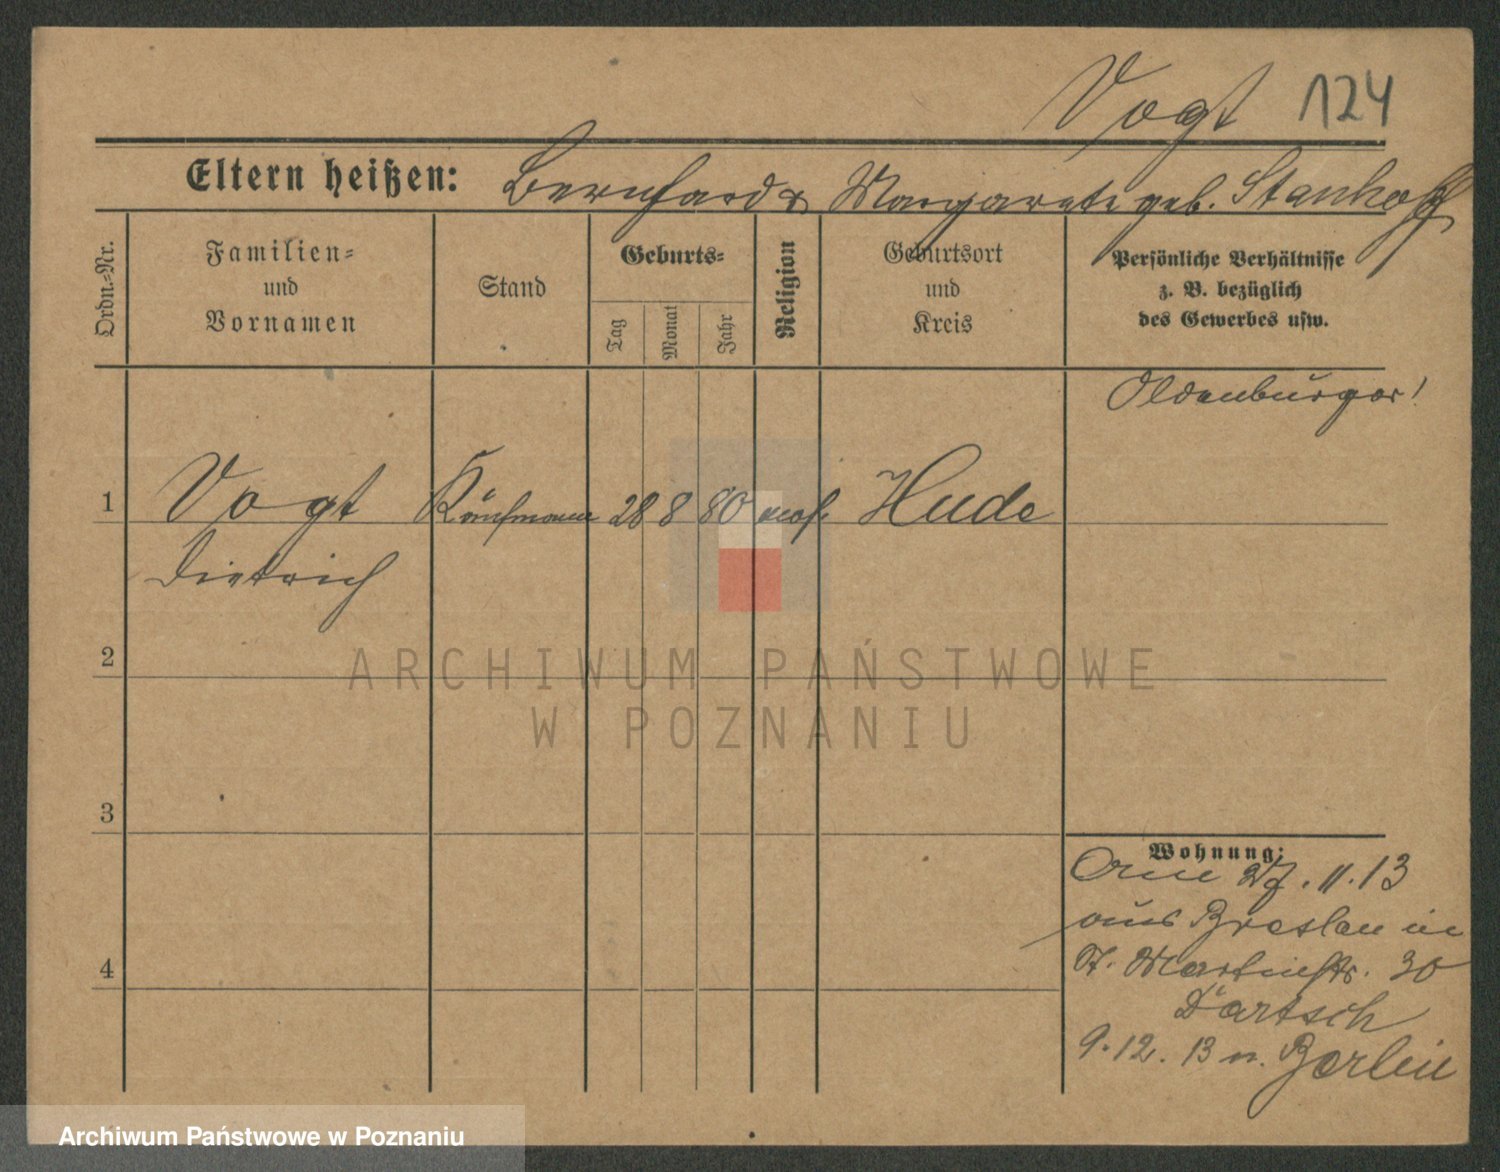 Vogt 124
Eltern heißen: Bernhard & Margarete geb. Stankoff
Ordn.-Nr.
Familien- und Vornamen
Stand
Geburts-
Tag
Monat
Jahr
Religion
Geburtsort und Kreis
Persönliche Verhältnisse
z. B. bezüglich
des Gewerbes usw.
Oldenburger!
1 Vogt Kaufmann 28 8 80 Hude
Dietrich
2
3
4
Wohnung:
Am 27. 11. 13
aus Breslau in
St. Martinstr. 30
9. 12. 13 n. Berlin
ARCHIWUM PAŃSTWOWE
W POZNANIU
Archiwum Państwowe w Poznaniu